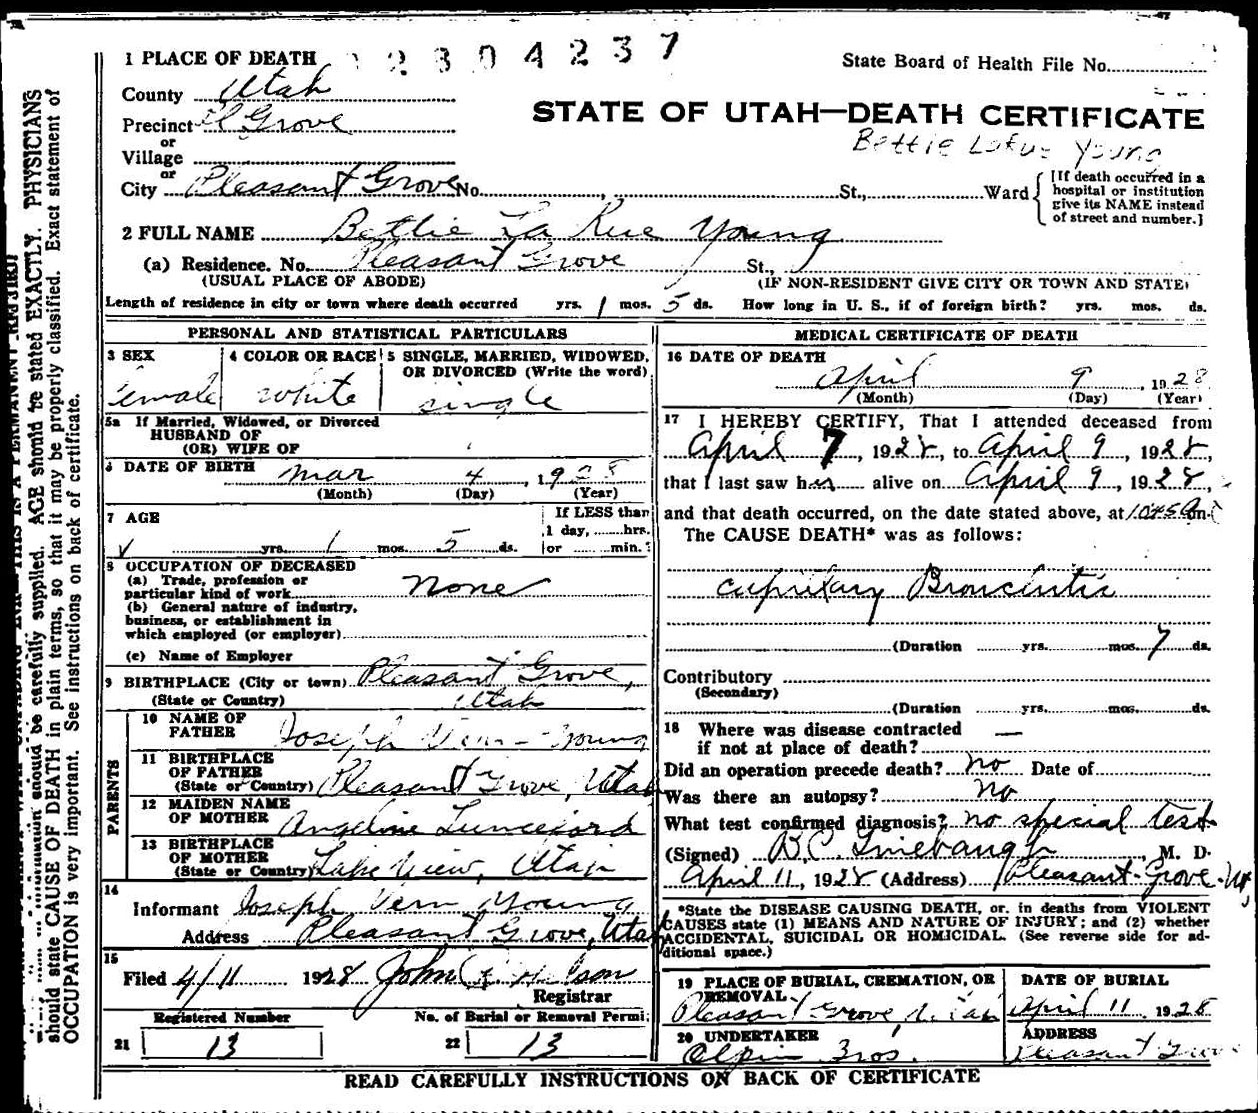 2304237
State Board of Health File No.
STATE OF UTAH—DEATH CERTIFICATE
Bettie Young
1 PLACE OF DEATH
County Utah
Precinct Pl Grove
or
Village
or
City Pleasant Grove No. St., Ward
[If death occurred in a
hospital or institution
give its NAME instead
of street and number.]
2 FULL NAME Bettie La Rue Young
(a) Residence. No. Pleasant Grove St.,
(USUAL PLACE OF ABODE) (IF NON-RESIDENT GIVE CITY OR TOWN AND STATE)
Length of residence in city or town where death occurred yrs. 1 mos. 5 ds. How long in U. S., if of foreign birth? yrs. mos. ds.
PERSONAL AND STATISTICAL PARTICULARS
3 SEX
Female
4 COLOR OR RACE
white
5 SINGLE, MARRIED, WIDOWED,
OR DIVORCED (Write the word)
single
5a If Married, Widowed, or Divorced
HUSBAND OF
(OR) WIFE OF
6 DATE OF BIRTH Mar 4, 1928
(Month) (Day) (Year)
7 AGE
yrs. 1 mos. 5 ds.
If LESS than
1 day, hrs.
or min.
8 OCCUPATION OF DECEASED
(a) Trade, profession or
particular kind of work None
(b) General nature of industry,
business, or establishment in
which employed (or employer)
(c) Name of Employer
9 BIRTHPLACE (City or town) Pleasant Grove,
(State or Country) Utah
PARENTS
10 NAME OF
FATHER Joseph Vern Young
11 BIRTHPLACE
OF FATHER
(State or Country) Pleasant Grove, Utah
12 MAIDEN NAME
OF MOTHER Angeline
13 BIRTHPLACE
OF MOTHER
(State or Country) Lake View, Utah
14
Informant Joseph Vern Young
Address Pleasant Grove, Utah
15
Filed 4/11 1928 John
Registrar
Registered Number
21 13
No. of Burial or Removal Permi:
22 13
MEDICAL CERTIFICATE OF DEATH
16 DATE OF DEATH
April 9, 1928
(Month) (Day) (Year)
17 I HEREBY CERTIFY, That I attended deceased from
April 7, 1928, to April 9, 1928,
that I last saw her alive on April 9, 1928,
and that death occurred, on the date stated above, at 1045 A m.
The CAUSE DEATH* was as follows:
Capillary Bronchitis
(Duration yrs. mos. 7 ds.
Contributory
(Secondary)
(Duration yrs. mos. ds.
18 Where was disease contracted
if not at place of death? —
Did an operation precede death? No Date of
Was there an autopsy? No
What test confirmed diagnosis? No special test
(Signed) B.C. Linebaugh, M. D.
April 11, 1928 (Address) Pleasant Grove Ut
*State the DISEASE CAUSING DEATH, or. in deaths from VIOLENT
CAUSES state (1) MEANS AND NATURE OF INJURY; and (2) whether
ACCIDENTAL, SUICIDAL OR HOMICIDAL. (See reverse side for ad-
ditional space.)
19 PLACE OF BURIAL, CREMATION, OR
REMOVAL
Pleasant Grove, Utah
DATE OF BURIAL
April 11, 1928
20 UNDERTAKER
Olpin Bros.
ADDRESS
Pleasant Grove
READ CAREFULLY INSTRUCTIONS ON BACK OF CERTIFICATE
should be carefully supplied. AGE should be stated EXACTLY. PHYSICIANS
should state CAUSE OF DEATH in plain terms, so that it may be properly classified. Exact statement of
OCCUPATION is very important. See instructions on back of certificate.